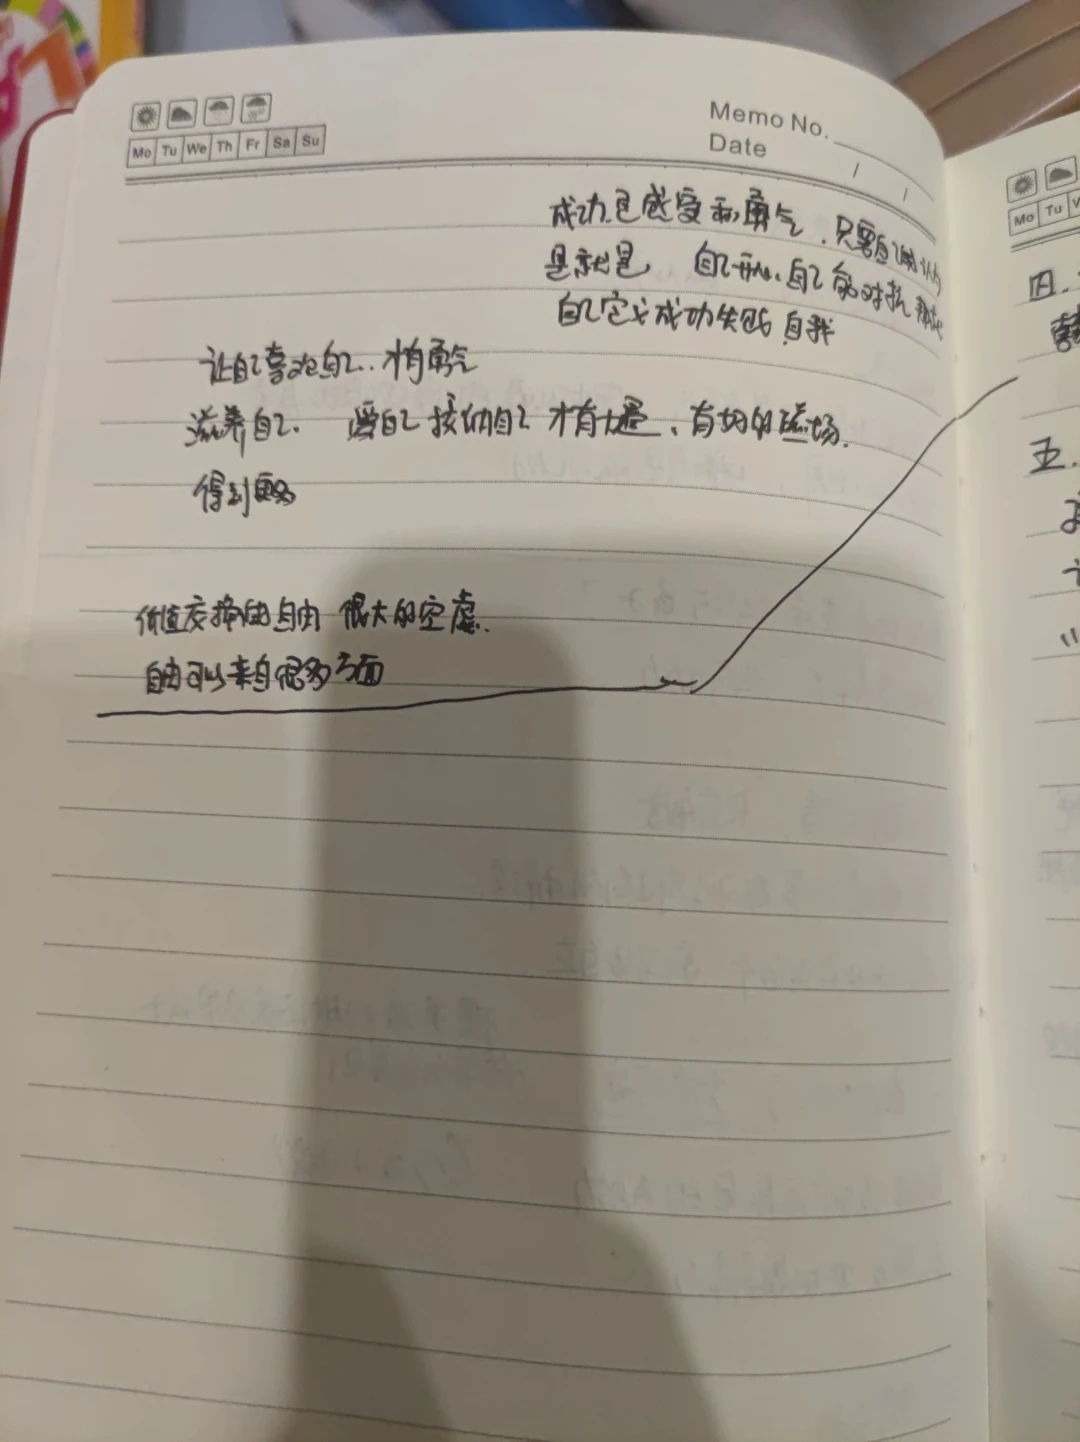 Memo No.
Mo Tu We Th Fr Sa Su
Date / /
成功是感受和勇气，只要自己认为
是就是 自己开心、自己能对抗
自己定义成功失败 自我
让自己喜欢自己..才有勇气
滋养自己. 爱自己 接纳自己 才有力量、有好的磁场.
得到更多
价值交换的自由 很大的空虚.
自由可以来自很多方面
Mo Tu
四.
五.